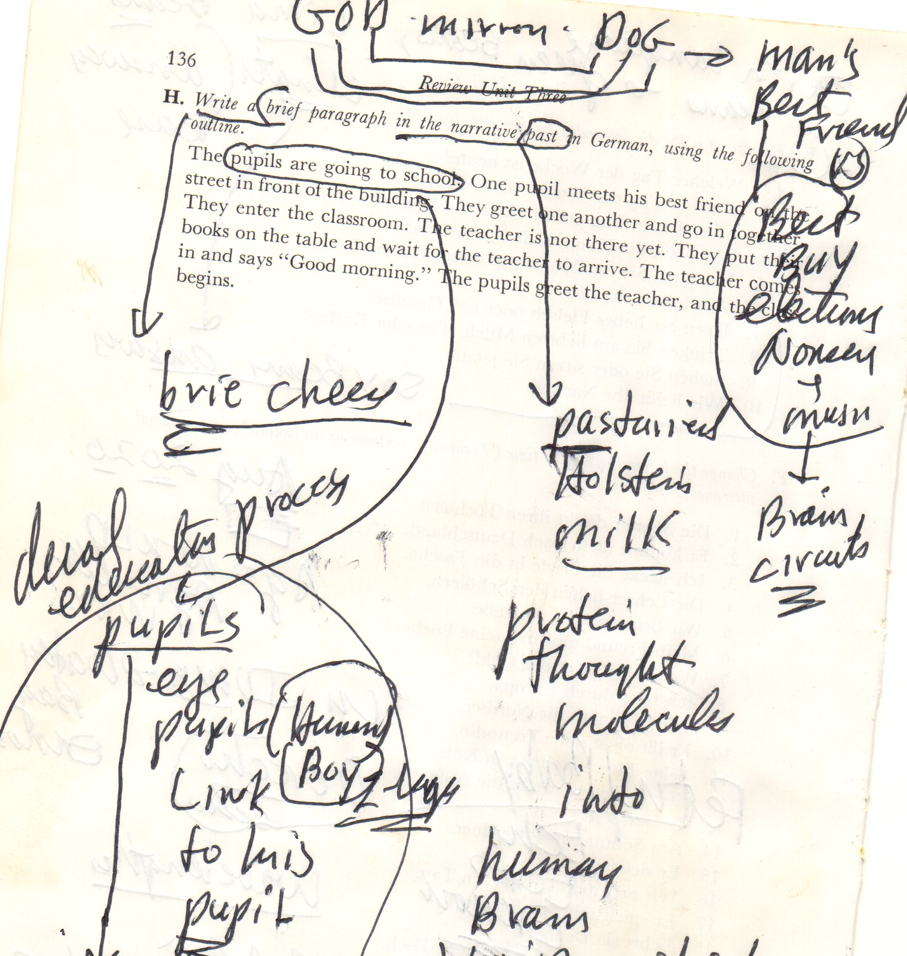 GOD mirror. DOG → man's
Best
Friend
136
Review Unit Three
H. Write a brief paragraph in the narrative past in German, using the following
outline.
The pupils are going to school. One pupil meets his best friend on the
street in front of the building. They greet one another and go in together.
They enter the classroom. The teacher is not there yet. They put their
books on the table and wait for the teacher to arrive. The teacher comes
in and says “Good morning.” The pupils greet the teacher, and the class
begins.
Best
Buy
Brain
circuits
brie chees
pasturized
Holstein
milk
protein
thought
molecules
into
human
Brain
process
pupils
eye
pupils (Human
Boy) 2 legs
Link
to his
pupil